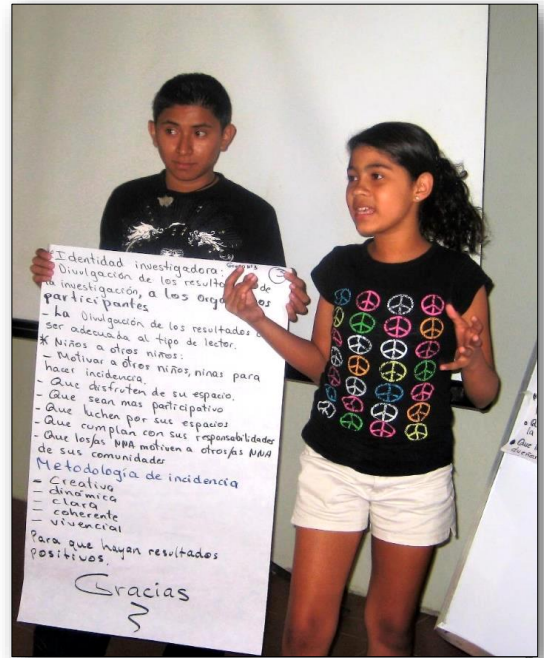 Identidad investigadora: Grupo Nº3
- Divulgación de los result de
la investigación, a los org os
participantes
- La Divulgación de los resultados
ser adecuada al tipo de lector.
* Niños a otros niños:
- Motivar a otros niños, niñas para
hacer incidencia.
- Que disfruten de su espacio.
- Que sean mas participativo
- Que luchen por sus espacios
- Que cumplan con sus responsabilidades
- Que los/as NNA motiven a otros/as NNA
de sus comunidades
Metodología de incidencia
- Creativa
- dinámica
- clara
- coherente
- vivencial
Para que hayan resultados
positivos.
Gracias